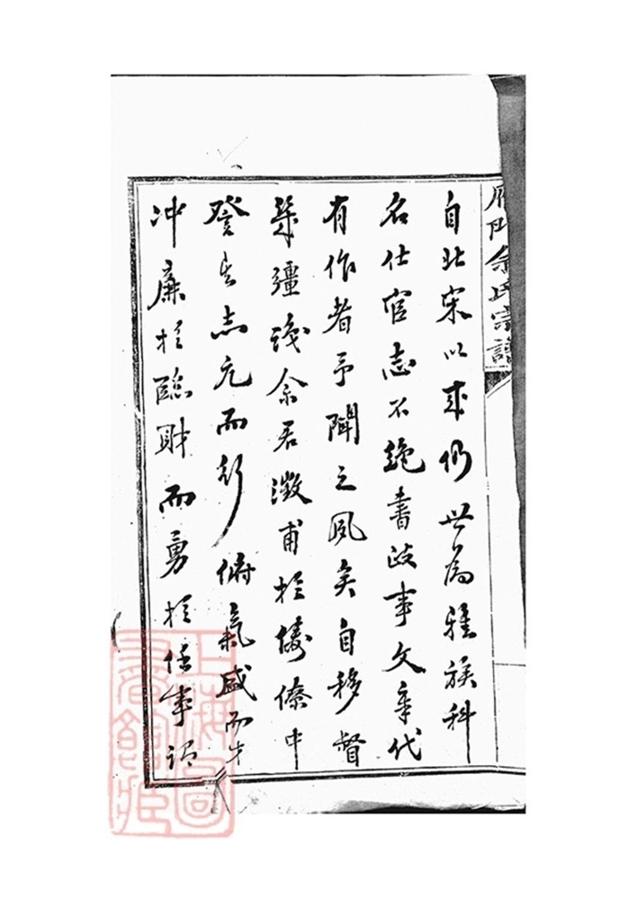 雁門余氏宗譜
自北宋以來仍世為雅族科
名仕宦志不絕書政事文章代
有作者予聞之夙矣自移督
畿疆識余君澂甫於儔僚中
其志亢而俯氣盛而才
冲廉於臨財而勇於任事
上海圖書館藏